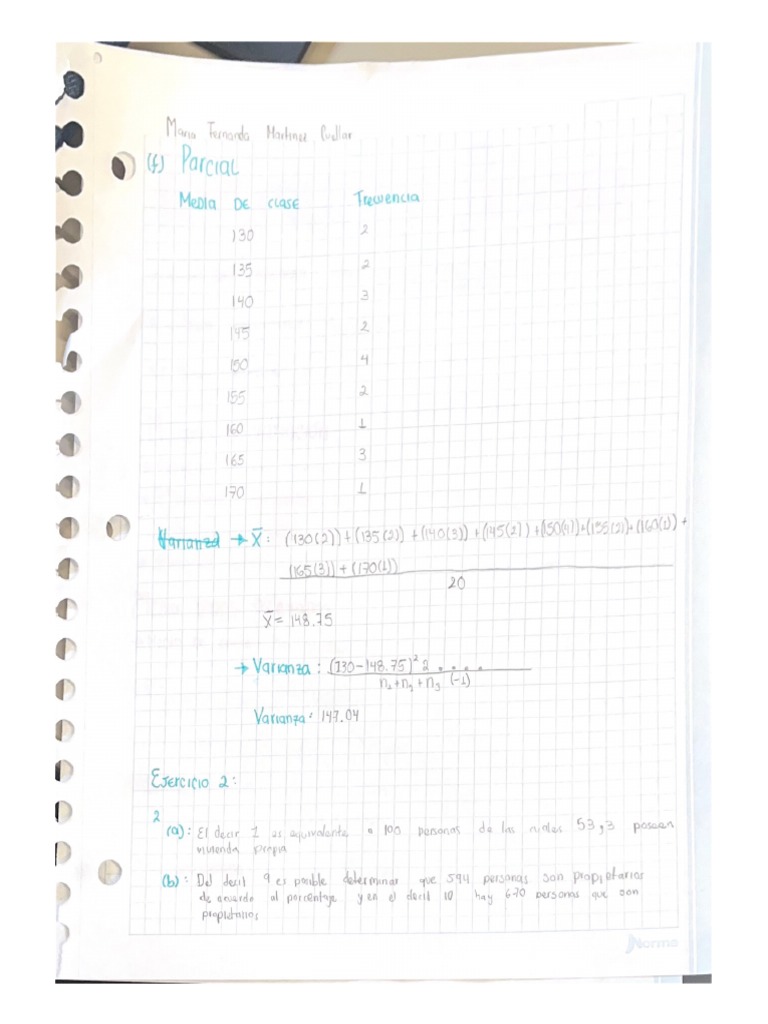 Maria Fernanda Martinez Cuellar
(f) Parcial
Media DE CLASE Frecuencia
130 2
135 2
140 3
145 2
150 4
155 2
160 1
165 3
170 1
Varianza → X̄: (130(2))+(135(2))+(140(3))+(145(2))+(150(4))+(155(2))+(160(1))+
(165(3))+(170(1))
20
X̄= 148.75
→ Varianza: (130-148.75)² 2 . . . .
n₁+n₂+n₃ (-1)
Varianza: 147.04
Ejercicio 2:
2
(a): El decir 1 es equivalente a 100 personas de las cuales 53,3 poseen
vivienda propia
(b): Del decil 9 es posible determinar que 594 personas son propietarios
de acuerdo al porcentaje y en el decil 10 hay 670 personas que son
propietarios
Norma